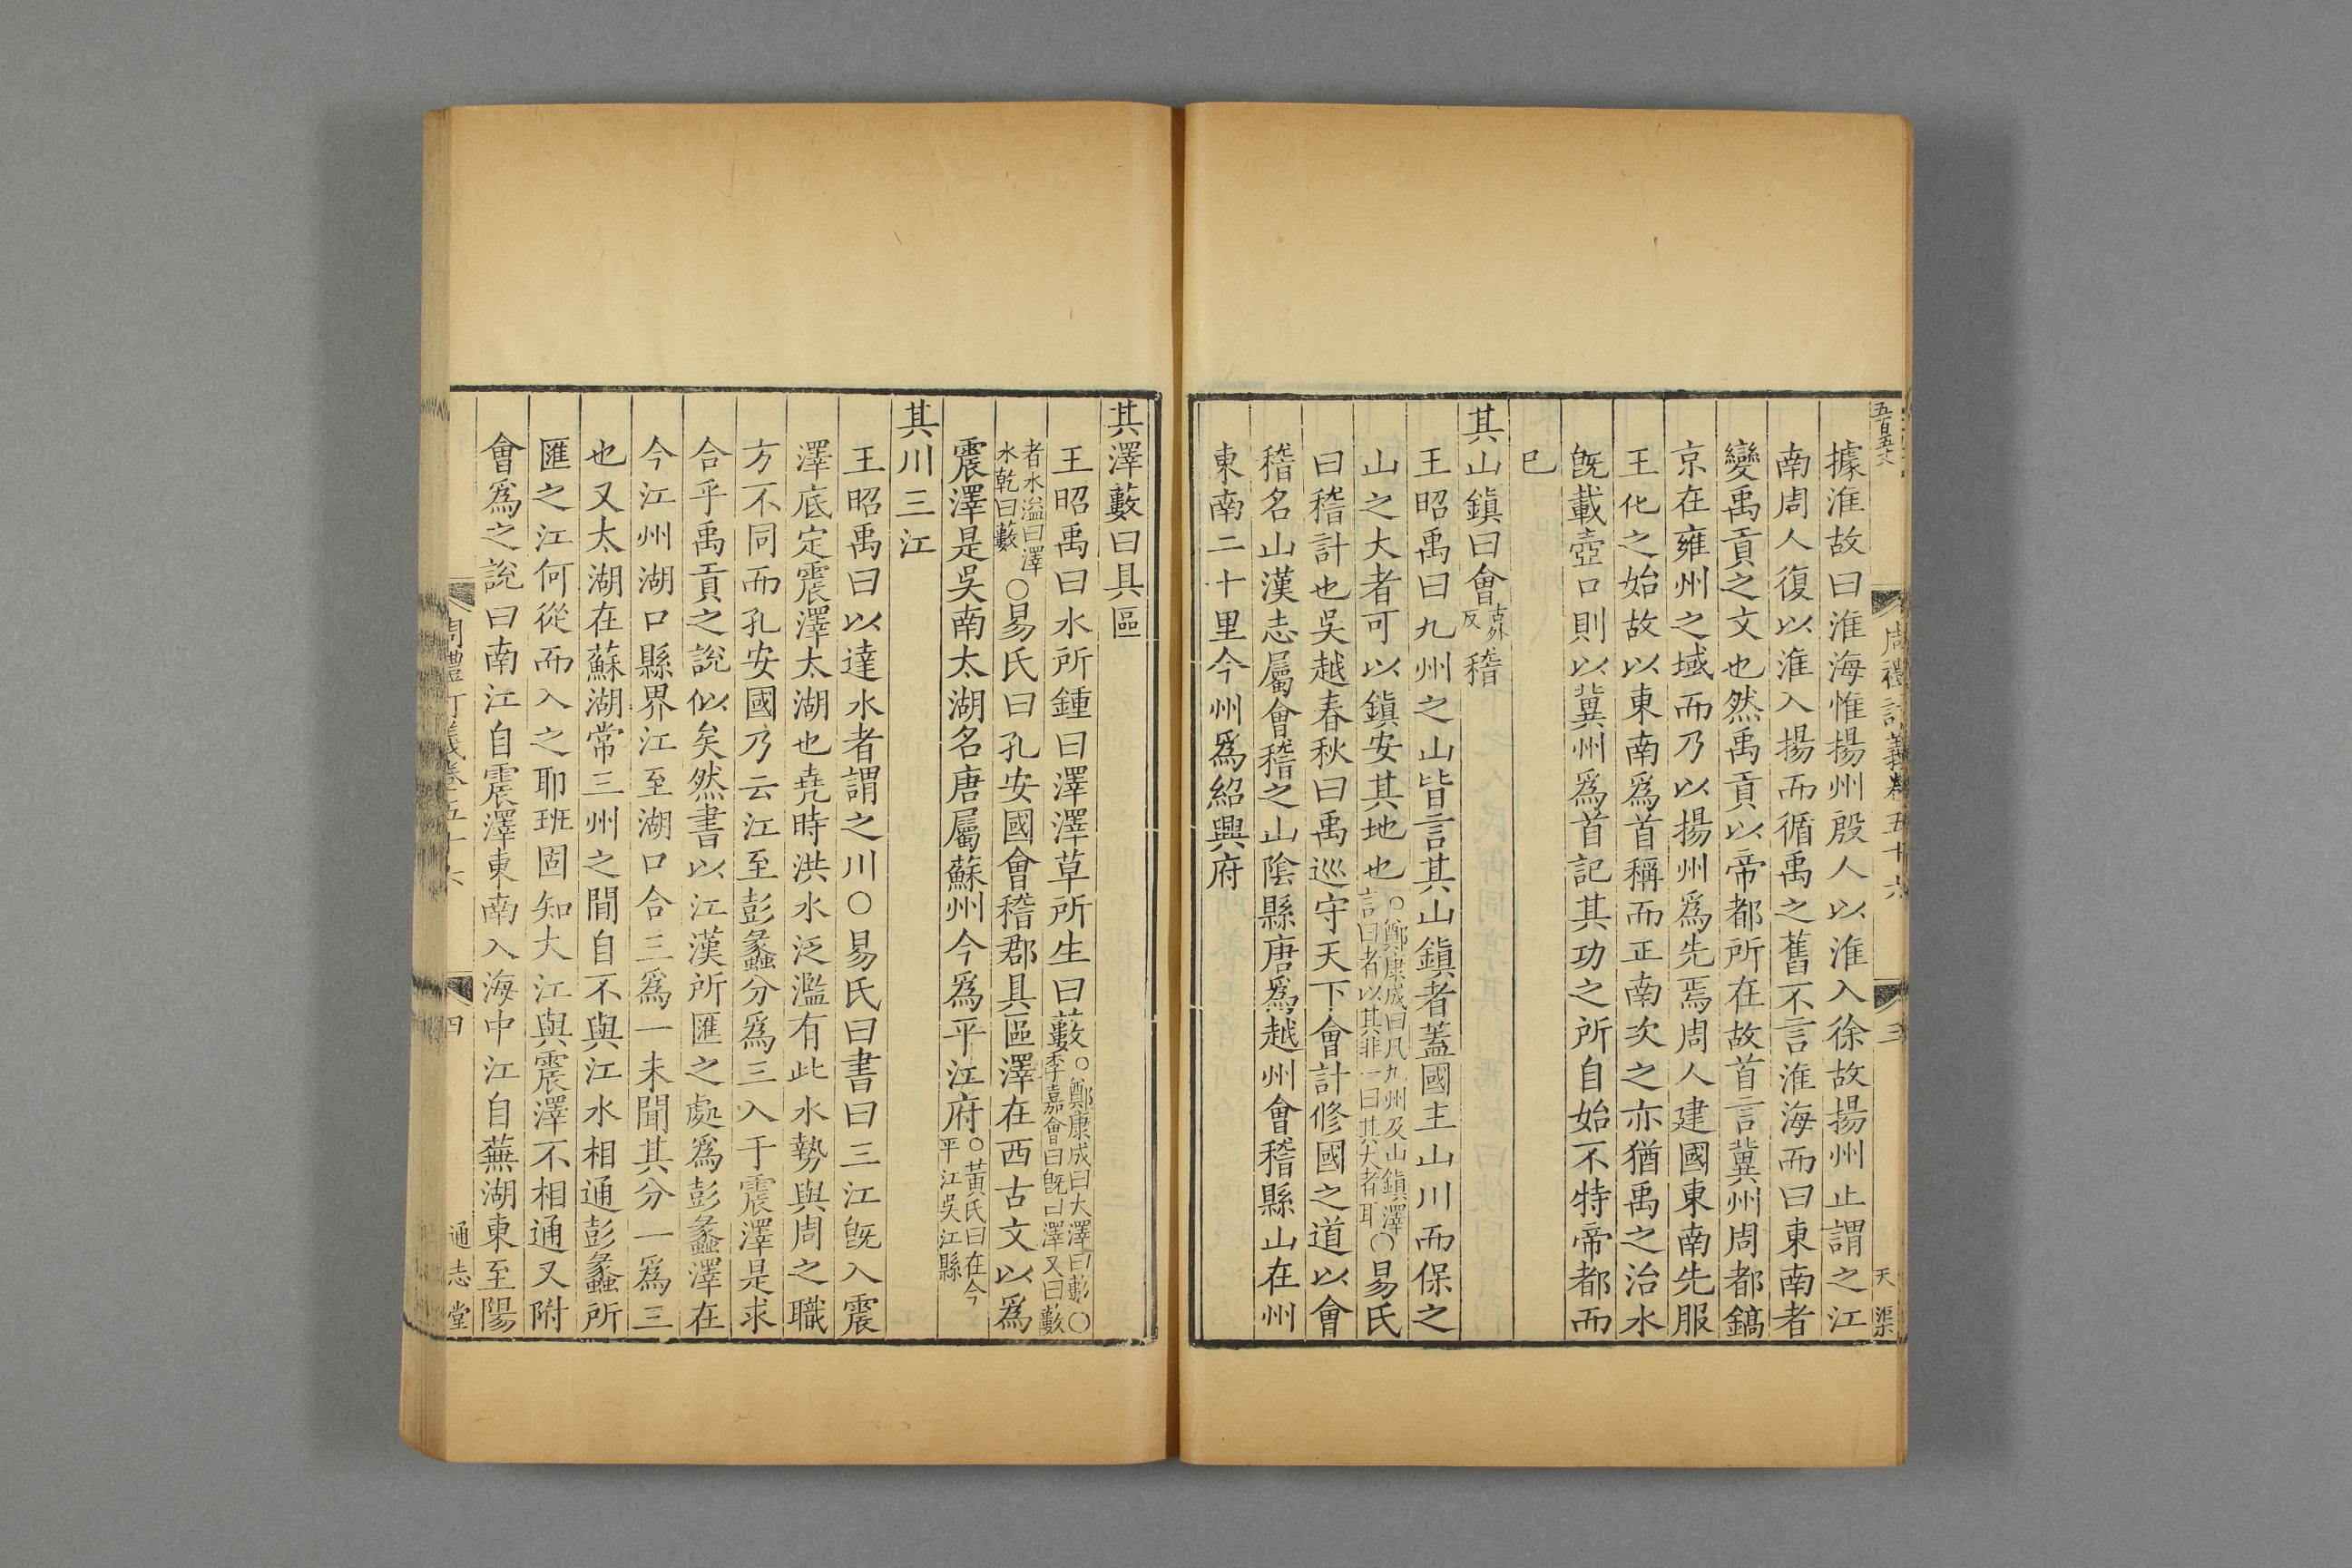 周禮訂義卷五十六 三 天渠
據淮故曰淮海惟揚州殷人以淮入徐故揚州止謂之江
南周人復以淮入揚而循禹之舊不言淮海而曰東南者
變禹貢之文也然禹貢以帝都所在故首言冀州周都鎬
京在雍州之域而乃以揚州爲先焉周人建國東南先服
王化之始故以東南爲首稱而正南次之亦猶禹之治水
旣載壺口則以冀州爲首記其功之所自始不特帝都而
已
其山鎮曰會古外反稽
王昭禹曰九州之山皆言其山鎮者蓋國主山川而保之
山之大者可以鎮安其地也○鄭康成曰凡九州及山鎮澤言曰者以其非一曰其大者耳○易氏
曰稽計也吳越春秋曰禹巡守天下會計修國之道以會
稽名山漢志屬會稽之山陰縣唐爲越州會稽縣山在州
東南二十里今州爲紹興府
其澤藪曰具區
王昭禹曰水所鍾曰澤澤草所生曰藪○鄭康成曰大澤曰藪○李嘉會曰旣曰澤又曰藪
者水溢曰澤水乾曰藪○易氏曰孔安國會稽郡具區澤在西古文以爲
震澤是吳南太湖名唐屬蘇州今爲平江府○黃氏曰在今平江吳江縣
其川三江
王昭禹曰以達水者謂之川○易氏曰書曰三江旣入震
澤底定震澤太湖也堯時洪水泛濫有此水勢與周之職
方不同而孔安國乃云江至彭蠡分爲三入于震澤是求
合乎禹貢之說似矣然書以江漢所匯之處爲彭蠡澤在
今江州湖口縣界江至湖口合三爲一未聞其分一爲三
也又太湖在蘇湖常三州之間自不與江水相通彭蠡所
匯之江何從而入之耶班固知大江與震澤不相通又附
會爲之說曰南江自震澤東南入海中江自蕪湖東至陽
周禮訂義卷五十六 四 通志堂